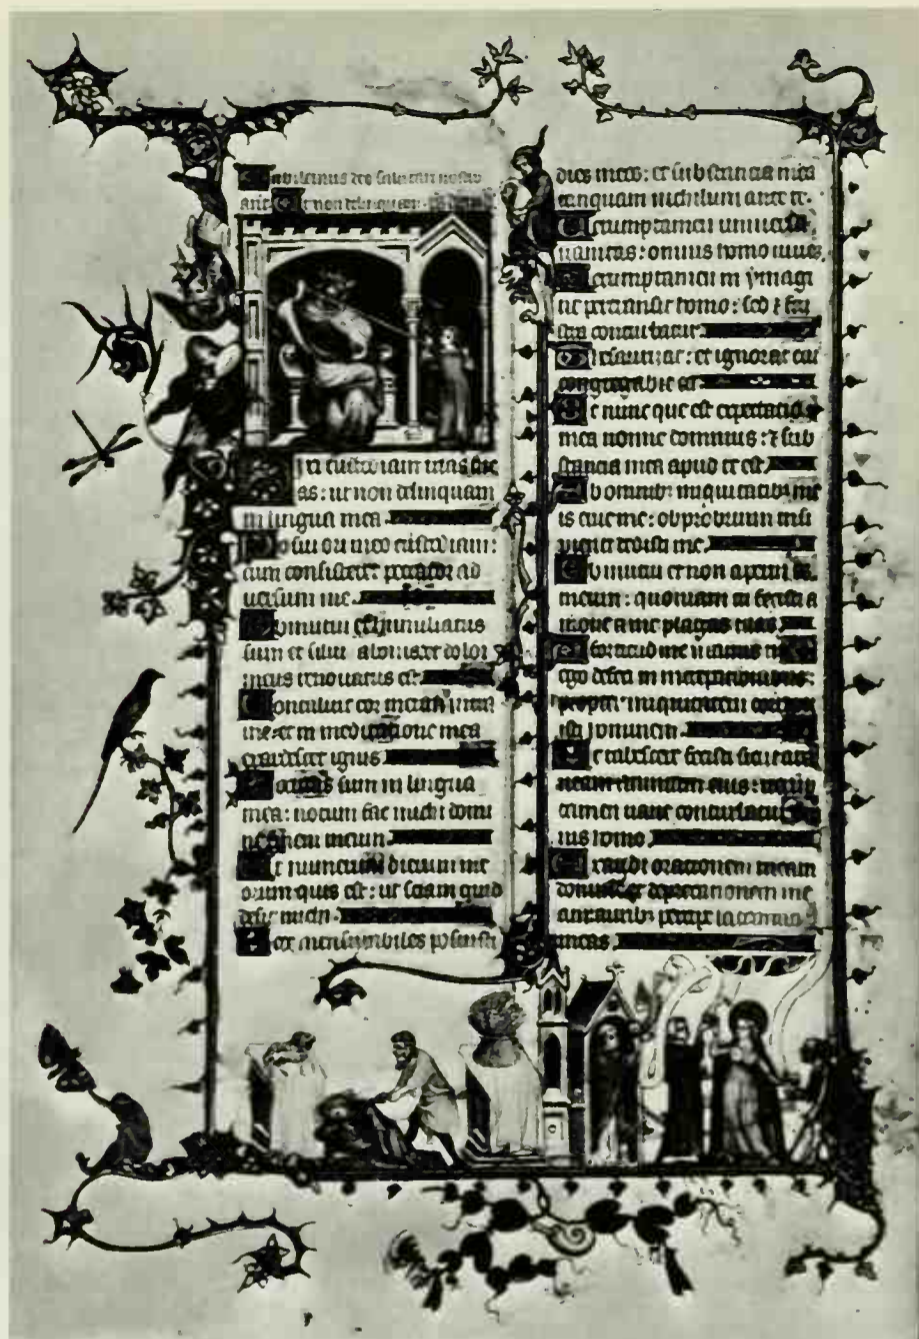 salutari nostro
Et non delinquam
ixi custodiam vias me
as: ut non delinquam
in lingua mea
Posui ori meo custodiam:
cum consisteret peccator ad
versum me
Obmutui et humiliatus
sum et silui a bonis et dolor
meus renovatus est
Concaluit cor meum intra
me: et in meditatione mea
exardescet ignis
Locutus sum in lingua
mea: notum fac michi domi
ne finem meum
Et numerum dierum me
orum quis est: ut sciam quid
desit michi
posuisti
dies meos: et substancia mea
tanquam nichilum ante te.
Verumptamen universa
vanitas: omnis homo vivens
Verumptamen in ymagi
ne pertransit homo: sed et fru
stra conturbatur
Thesaurizat: et ignorat cui
congregabit ea
Et nunc que est expectatio
mea nonne dominus: et sub
stancia mea apud te est
Ab omnibus iniquitatibus me
is erue me: obprobrium insi
pienti dedisti me
Obmutui et non aperui os
meum: quoniam tu fecisti a
move a me plagas tuas
ego defeci in increpationibus:
propter iniquitatem
isti hominem
Et tabescere fecisti sicut ara
neam animam eius:
tamen vane conturbatur
homo
Exaudi orationem meam
domine et deprecationem me
am auribus percipe lacrimas
meas